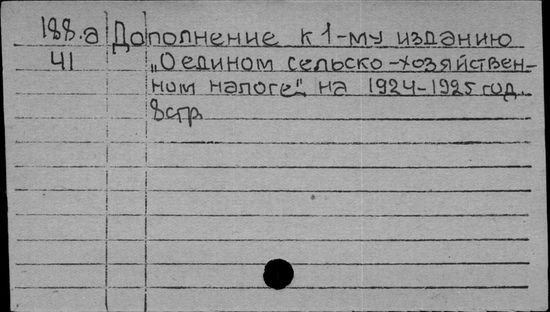 188.а Дополнение к 1-му изданию
41 „О едином сельско-хозяйствен-
ном налоге" на 1924-1925 год.
8стр.